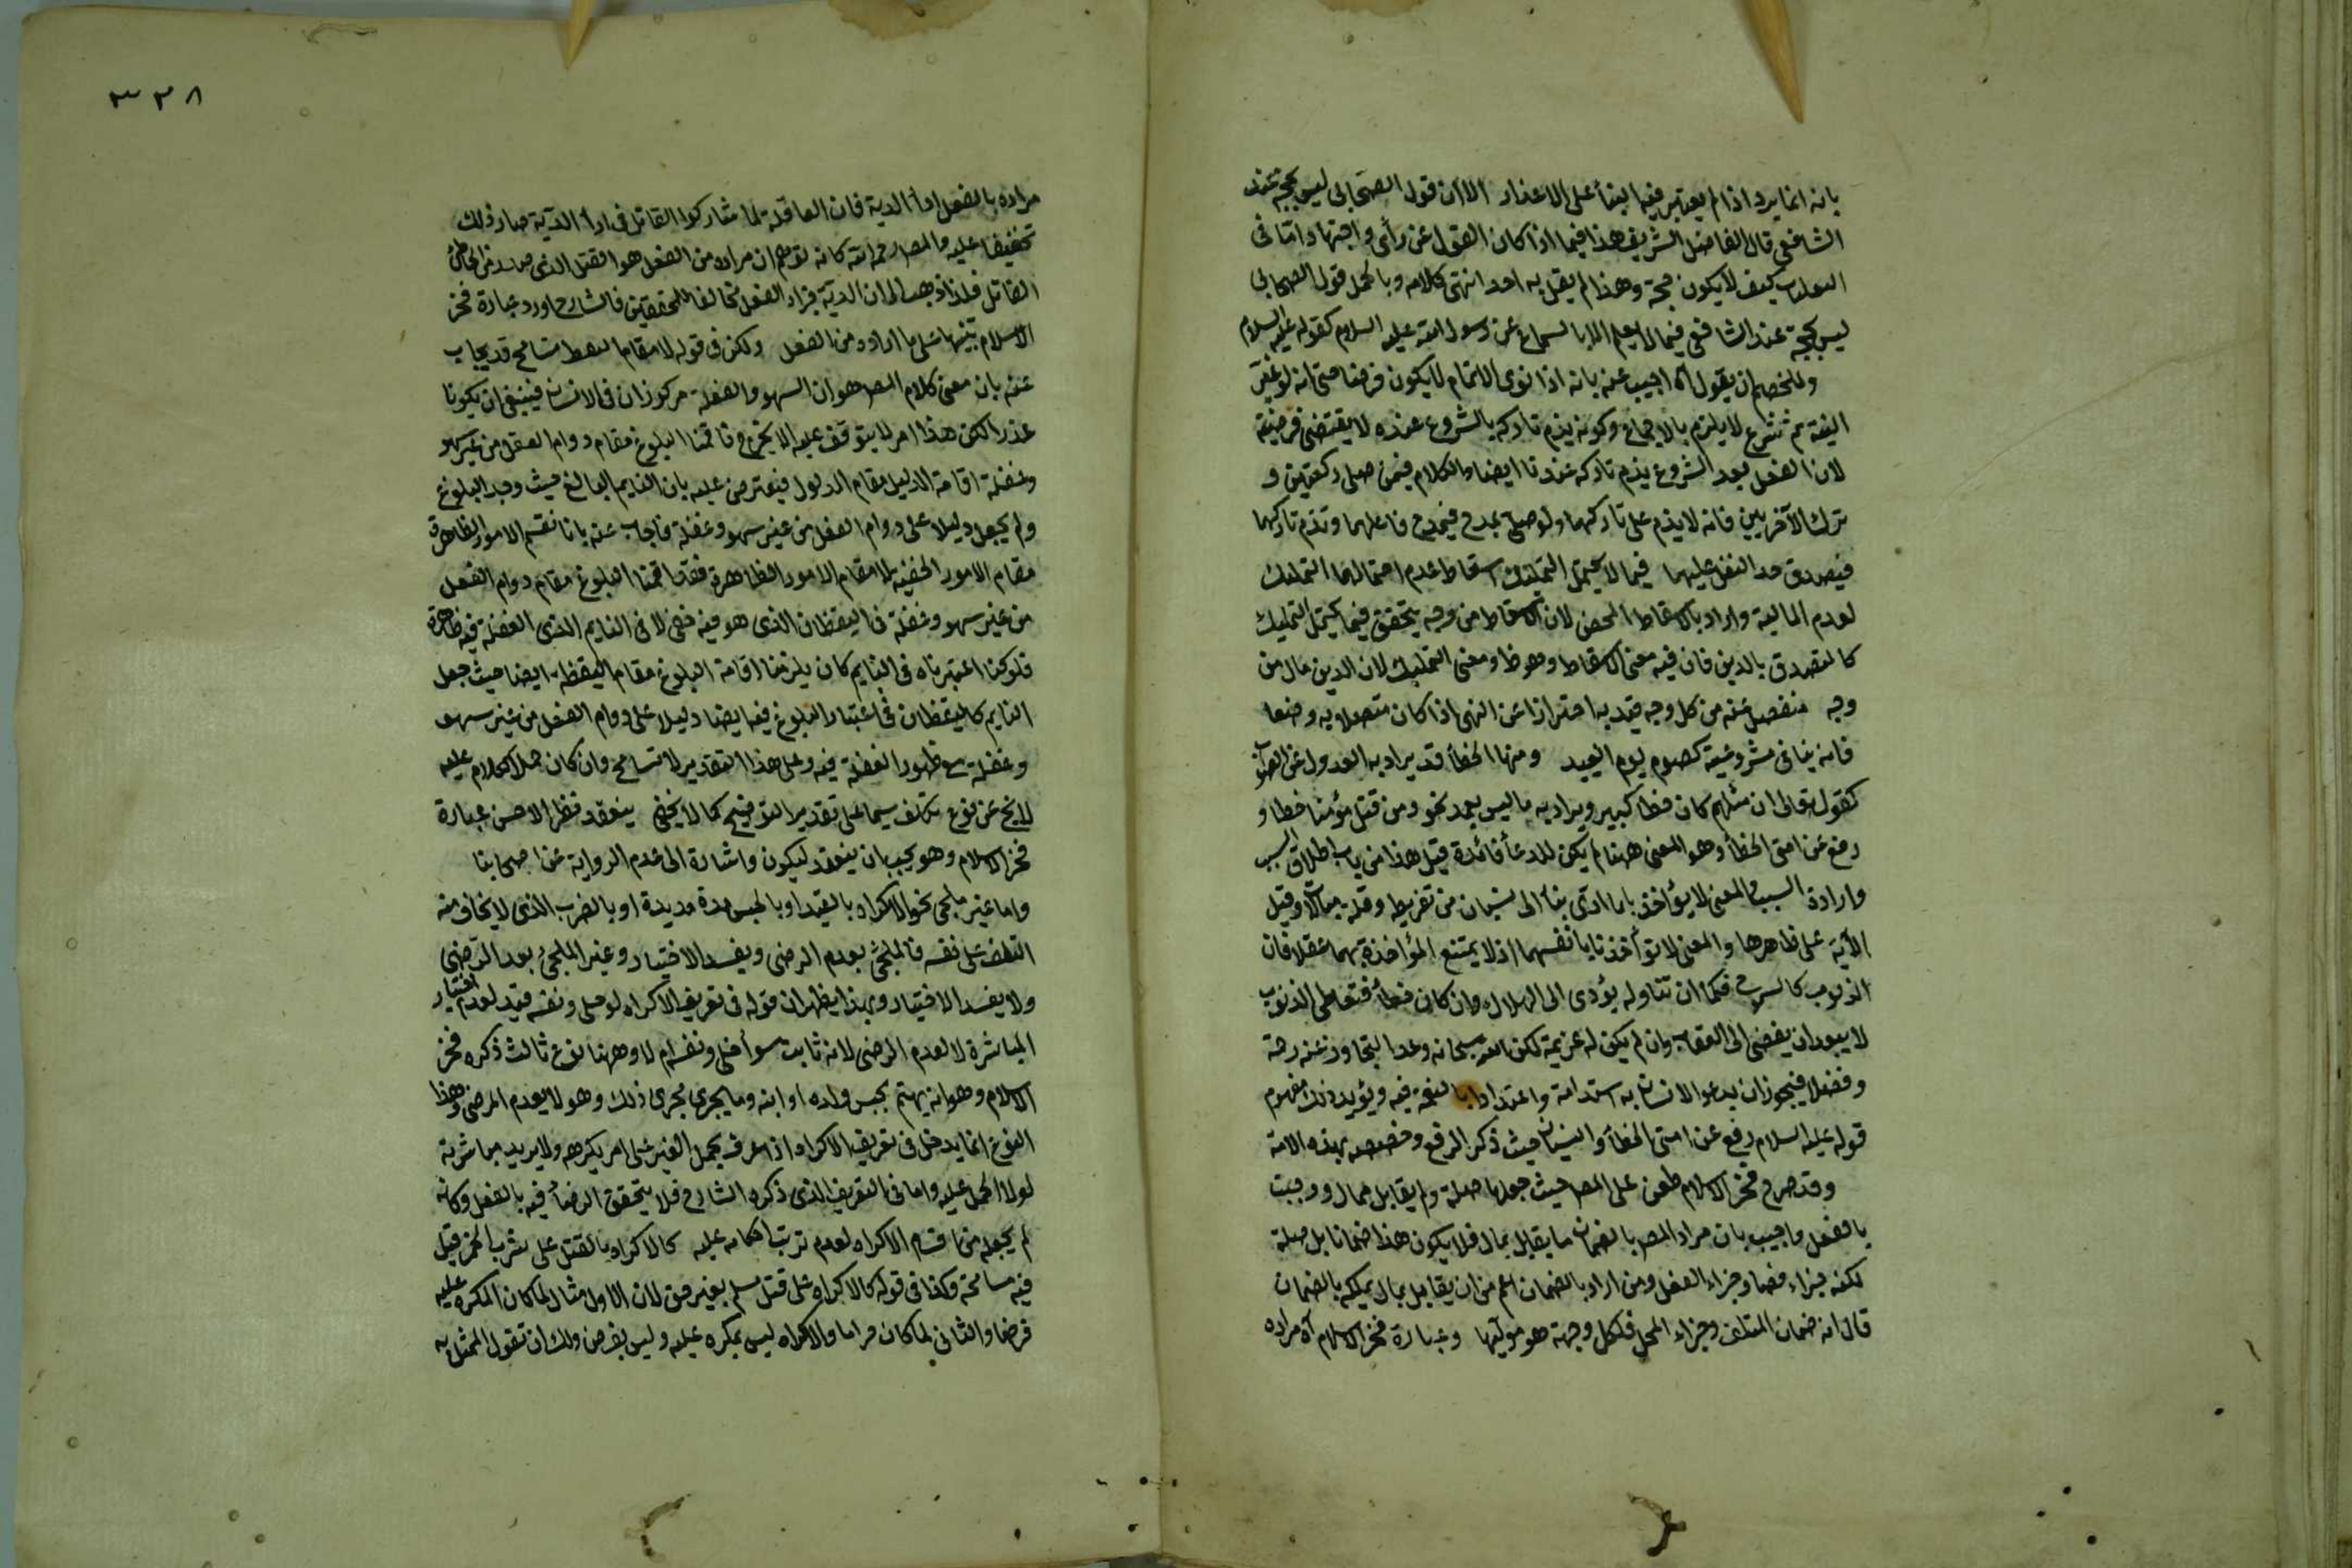 بانه انما يرد اذا لم يعتبر فيه البناء على الاعذار الا ان قول الصحابى ليس بحجة عند
الشافعى قال الفاضل الشريف هذا فيما اذا كان القول عن رأى واجتهاد واما فى
كيف لا يكون حجة وهذا لم يقل به احد انتهى كلامه وبالجملة قول الصحابى
ليس بحجة عند الشافعى فيما لا يعلم الا بالسماع عن رسول الله عليه السلام كقوله عليه السلام
وللخصم ان يقول اه اجيب عنه بانه اذا نوى الاتمام لا يكون فرضا حتى انه لو غير
النية ثم شرع لا يلزم بالاجماع وكونه يذم تاركه بالشروع عنده لا يقتضى فرضيته
لان النفل بعد الشروع يذم تاركه عندنا ايضا والكلام فيمن صلى ركعتين و
ترك الآخريين فانه لا يذم على تاركهما ولو صلى يمدح فيمدح فاعلهما وتذم تاركهما
فيصدق حد النفل عليهما فيما لا يحتمل التمليك اسقاط عدم احتمالها التمليك
لعدم المالية واراد بالاسقاط المحض لان الاسقاط من وجه يتحقق فيما يحتمل التمليك
كالتصدق بالدين فان فيه معنى الاسقاط وهو ظ ومعنى التمليك لان الدين مال من
وجه منفصل عنه من كل وجه قيد به احترازا عن النهى اذا كان متصلا به وصفا
فانه ينافى مشروعية كصوم يوم العيد ومنها الخطأ قد يراد به العدول عن الصواب
كقوله تعالى ان قتلهم كان خطا كبيرا ويراد به ما ليس بعمد نحو ومن قتل مؤمنا خطا و
رفع عن امتى الخطأ وهو المعنى ههنا لم يكن للدعأ فائدة قيل هذا من باب اطلاق السبب
وارادة المسبب والمعنى لا تؤاخذنا بما ادى بنا الى نسيان من تفريط وقلة مبالاة وقيل
الآية على ظاهرها والمعنى لا تؤاخذنا بانفسهما اذ لا يمتنع المؤاخذة بهما عقلا فان
الذنوب كالسم فكما ان تناوله يؤدى الى الهلاك وان كان خطأ فتعاطى الذنوب
لا يبعد ان يفضى الى العقاب وان لم يكن له عزيمة لكن الله سبحانه وعد التجاوز عنه رحمة
وفضلا فيجوز ان يدعو الانسان به استدامة واعتدادا بالنعمة فيه ويؤيد ذلك مفهوم
قوله عليه السلام رفع عن امتى الخطأ والنسيان حيث ذكر الرفع وخصصه بهذه الامة
وقد صرح فخر الاسلام طعن على المص حيث جعلها صلة ولم يقابل بمال ووجبت
بالفعل واجيب بان مراد المص بالضمان ما يقابل بمال فلا يكون هذا ضمانا بل صلة
لكنه جزاء فصار جزاء الفعل ومن اراد بالضمان اعم من ان يقابل بمال يملكه بالضمان
قال انه ضمان المتلف وجزاء المحل فلكل وجهة هو موليها وعبارة فخر الاسلام اه مراده
٣٢٨
مراده بالفعل اداء الدية فان العاقلة لما شاركوا القاتل فى اداء الدية صار ذلك
تخفيفا عليه والمص رحمه الله كانه توهم ان مراده من الفعل هو القتل الذى صدر من الخاطئ
القاتل فلذا ذهب الى ان الدية جزاء الفعل مخالفا للمحققين فالشارح اورد عبارة فخر
الاسلام تنبيها على ما اراده من الفعل ولكن فى قوله لا مقام تسامح قد يجاب
عنه بان معنى كلام المص هو ان السهو والغفلة مركوزان فى الانسان فينبغى ان يكونا
عذرا لكن هذا امر لا يتوقف عليه الا بحرج فاقمنا البلوغ مقام دوام العقل من غير سهو
وغفلة اقامة الدليل مقام المدلول فيعترض عليه بان النايم البالغ حيث وجد البلوغ
ولم يجعل دليلا على دوام العقل من غير سهو وغفلة فاجاب عنه بانا نقيم الامور الظاهرة
مقام الامور الخفية لا مقام الامور الظاهرة فقد اقمنا البلوغ مقام دوام العقل
من غير سهو وغفلة فى اليقظان الذى هو فيه خفى لا فى النايم الذى الغفلة فيه ظاهرة
فلو كنا اعتبرناه فى النايم كان يلزمنا اقامة البلوغ مقام اليقظة ايضا حيث جعل
النايم كاليقظان فى اعتبار البلوغ فيه ايضا دليلا على دوام العقل من غير سهو
وغفلة مع ظهور الغفلة فيه وعلى هذا التقدير لا تسامح وان كان حمل الكلام عليه
لا يخ عن نوع تكلف سيما على تقدير التوضيح كما لا يخفى ينعقد نظر الاحسن عبارة
فخر الاسلام وهو يجب ان ينعقد ليكون واشارة الى عدم الرواية عن اصحابنا
واما غير ملجئ نحو الاكراه بالقيد او بالحبس مدة مديدة او بالضرب الذى لا يخاف منه
التلف على نفسه فالملجئ يعدم الرضى ويفسد الاختيار وغير الملجئ يعدم الرضى
ولا يفسد الاختيار وبهذا يظهر ان قوله فى تعريف الاكراه لو خلى ونفسه قيد لعدم اختيار
المباشرة لا لعدم الرضى لانه ثابت سوأ خلى ونفسه ام لا وههنا نوع ثالث ذكره فخر
الاسلام وهو انه يهتم بحبس ولده او ابنه وما يجرى مجرى ذلك وهو لا يعدم الرضى وهذا
النوع انما يدخل فى تعريف الاكراه اذا عرف بحمل الغير على امر يكرهه ولا يريد مباشرته
لولا الحمل عليه واما فى التعريف الذى ذكره الشارح فلا يتحقق الرضأ فيه بالفعل وكانه
لم يجعله من اقسام الاكراه لعدم ترتب احكامه عليه كالاكراه بالقتل على شرب الخمر قيل
فيه مسامحة وكذا فى قوله كالاكراه على قتل مسلم بغير حق لان الاول مثال لما كان المكره عليه
فرضا والثانى لما كان حراما والاكراه ليس بمكره عليه وليس بفرض ولك ان تقول الممثل به